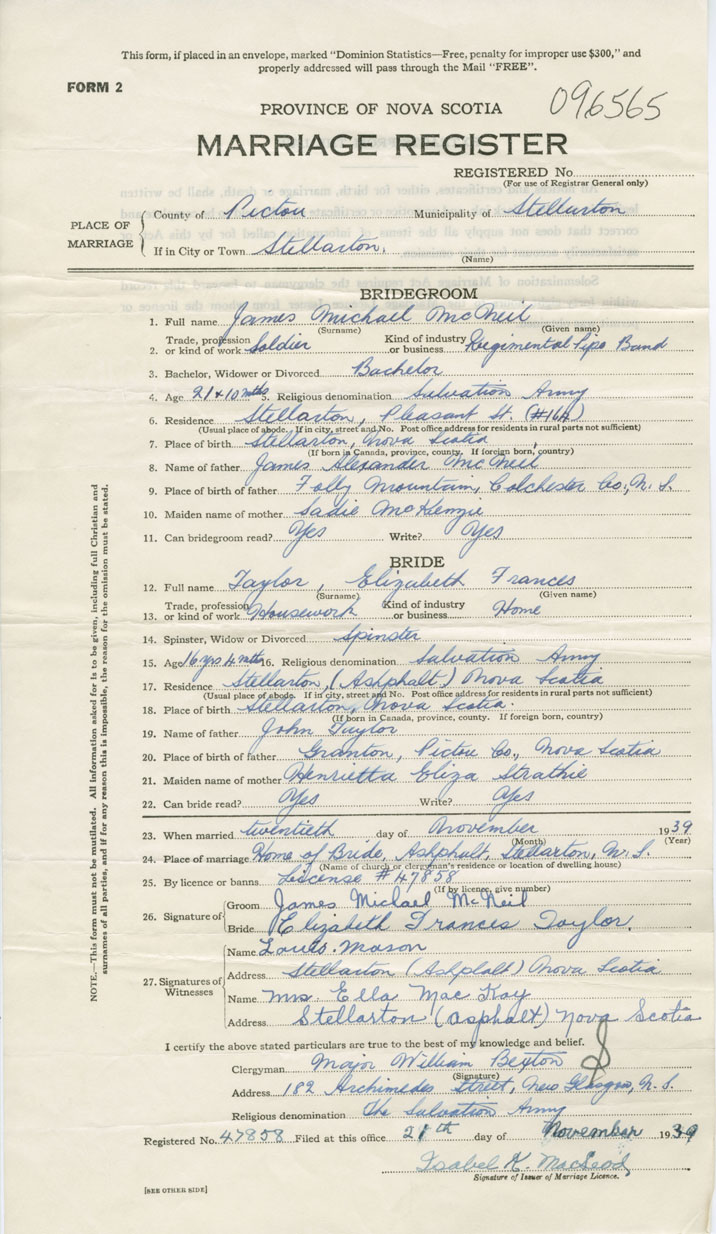 This form, if placed in an envelope, marked "Dominion Statistics—Free, penalty for improper use $300," and
properly addressed will pass through the Mail "FREE".
FORM 2
096565
PROVINCE OF NOVA SCOTIA
MARRIAGE REGISTER
REGISTERED No.
(For use of Registrar General only)
PLACE OF MARRIAGE
County of Pictou Municipality of Stellarton
If in City or Town Stellarton.
(Name)
BRIDEGROOM
1. Full name James Michael McNeil
(Surname) (Given name)
Trade, profession Kind of industry
2. or kind of work Soldier or business Regimental Pipe Band
3. Bachelor, Widower or Divorced Bachelor
4. Age 21 & 10 mths 5. Religious denomination Salvation Army
6. Residence Stellarton, Pleasant St. (#164)
(Usual place of abode. If in city, street and No. Post office address for residents in rural parts not sufficient)
7. Place of birth Stellarton, Nova Scotia
(If born in Canada, province, county. If foreign born, country)
8. Name of father James Alexander McNeil
9. Place of birth of father Folly Mountain, Colchester Co., N.S.
10. Maiden name of mother Sadie McKenzie
11. Can bridegroom read? Yes Write? Yes
BRIDE
12. Full name Taylor, Elizabeth Frances
(Surname) (Given name)
Trade, profession Kind of industry
13. or kind of work Housework or business Home
14. Spinster, Widow or Divorced Spinster
15. Age 16 yrs 4 mths 16. Religious denomination Salvation Army
17. Residence Stellarton, (Ashphalt) Nova Scotia
(Usual place of abode. If in city, street and No. Post office address for residents in rural parts not sufficient)
18. Place of birth Stellarton, Nova Scotia.
(If born in Canada, province, county. If foreign born, country)
19. Name of father John Taylor
20. Place of birth of father Granton, Pictou Co., Nova Scotia
21. Maiden name of mother Henrietta Eliza Strathie
22. Can bride read? Yes Write? Yes
23. When married twentieth day of November 1939
(Month) (Year)
24. Place of marriage Home of Bride, Ashphalt, Stellarton, N.S.
(Name of church or clergyman's residence or location of dwelling house)
25. By licence or banns License #47858
(If by licence, give number)
26. Signature of
Groom James Michael McNeil
Bride Elizabeth Frances Taylor.
27. Signatures of Witnesses
Name Louis. Mason
Address Stellarton (Ashphalt) Nova Scotia
Name Mrs. Ella MacKay
Address Stellarton (Asphalt) Nova Scotia
I certify the above stated particulars are true to the best of my knowledge and belief.
Clergyman Major William Bexton
(Signature)
Address 182 Archimedes Street, New Glasgow, N.S.
Religious denomination The Salvation Army
Registered No. 47858 Filed at this office 21th day of November 1939
Isabel K. MacLeod
Signature of Issuer of Marriage Licence.
[SEE OTHER SIDE]
NOTE.—This form must not be mutilated. All information asked for is to be given, including full Christian and
surnames of all parties, and if for any reason this is impossible, the reason for the omission must be stated.